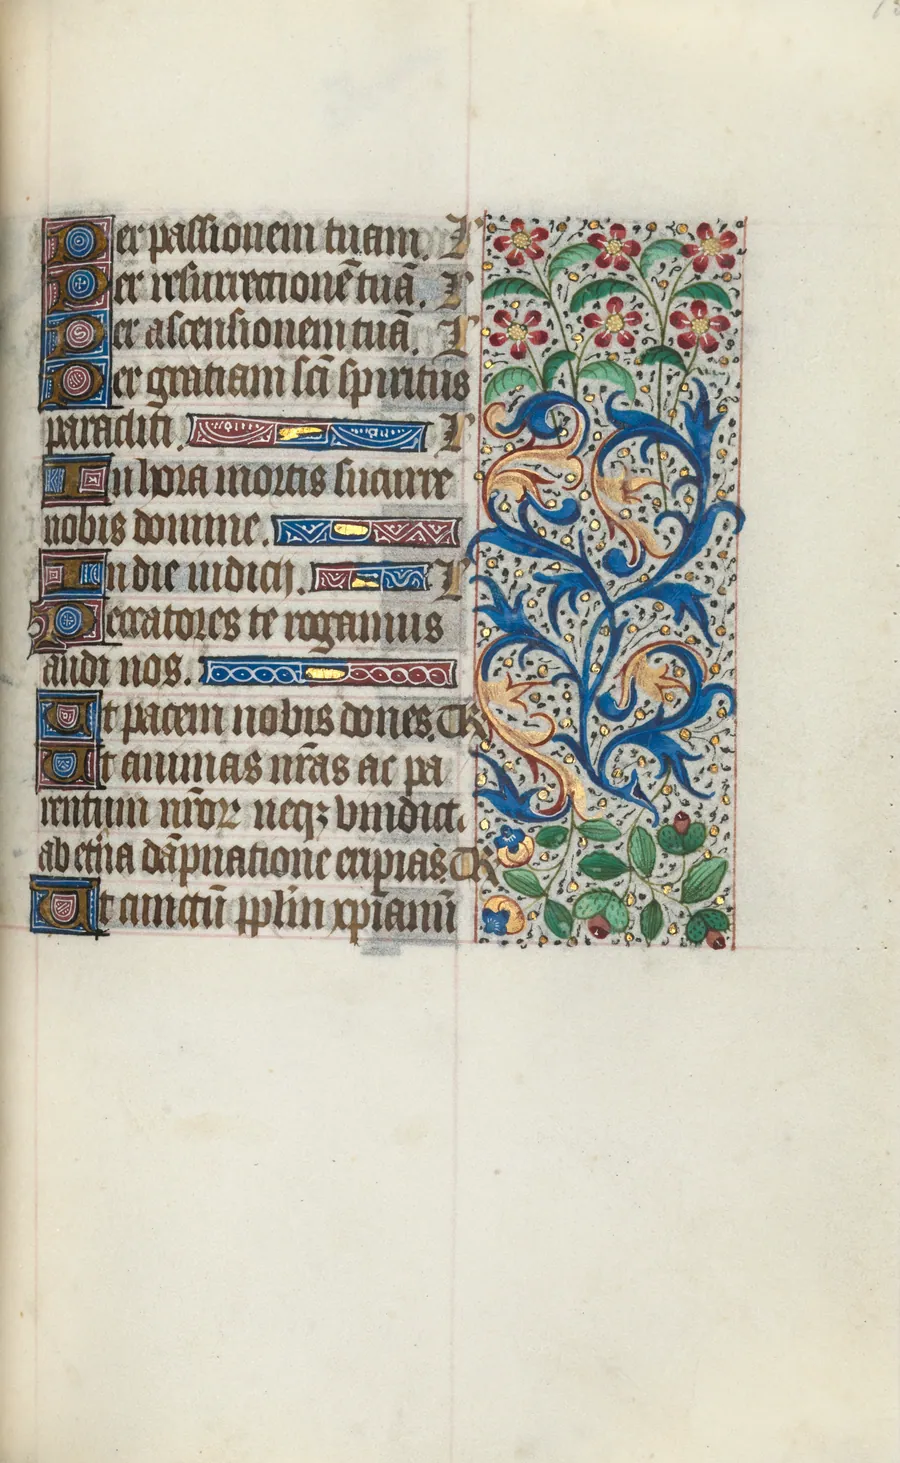 Per passionem tuam. L
Per resurrectionē tuā. L
Per ascensionem tuā. L
Per gratiam sc̄i spiritus
paracliti. L
In hora mortis sucurre
nobis domine.
In die iudicij. L
Peccatores te rogamus
audi nos.
Ut pacem nobis dones. TR
Ut animas nr̄as ac pa
rentum nr̄oꝝ neqꝫ vindict
ab et̄na dāpnatione eripias. TR
Ut cunctū pp̄lm xp̄ianū